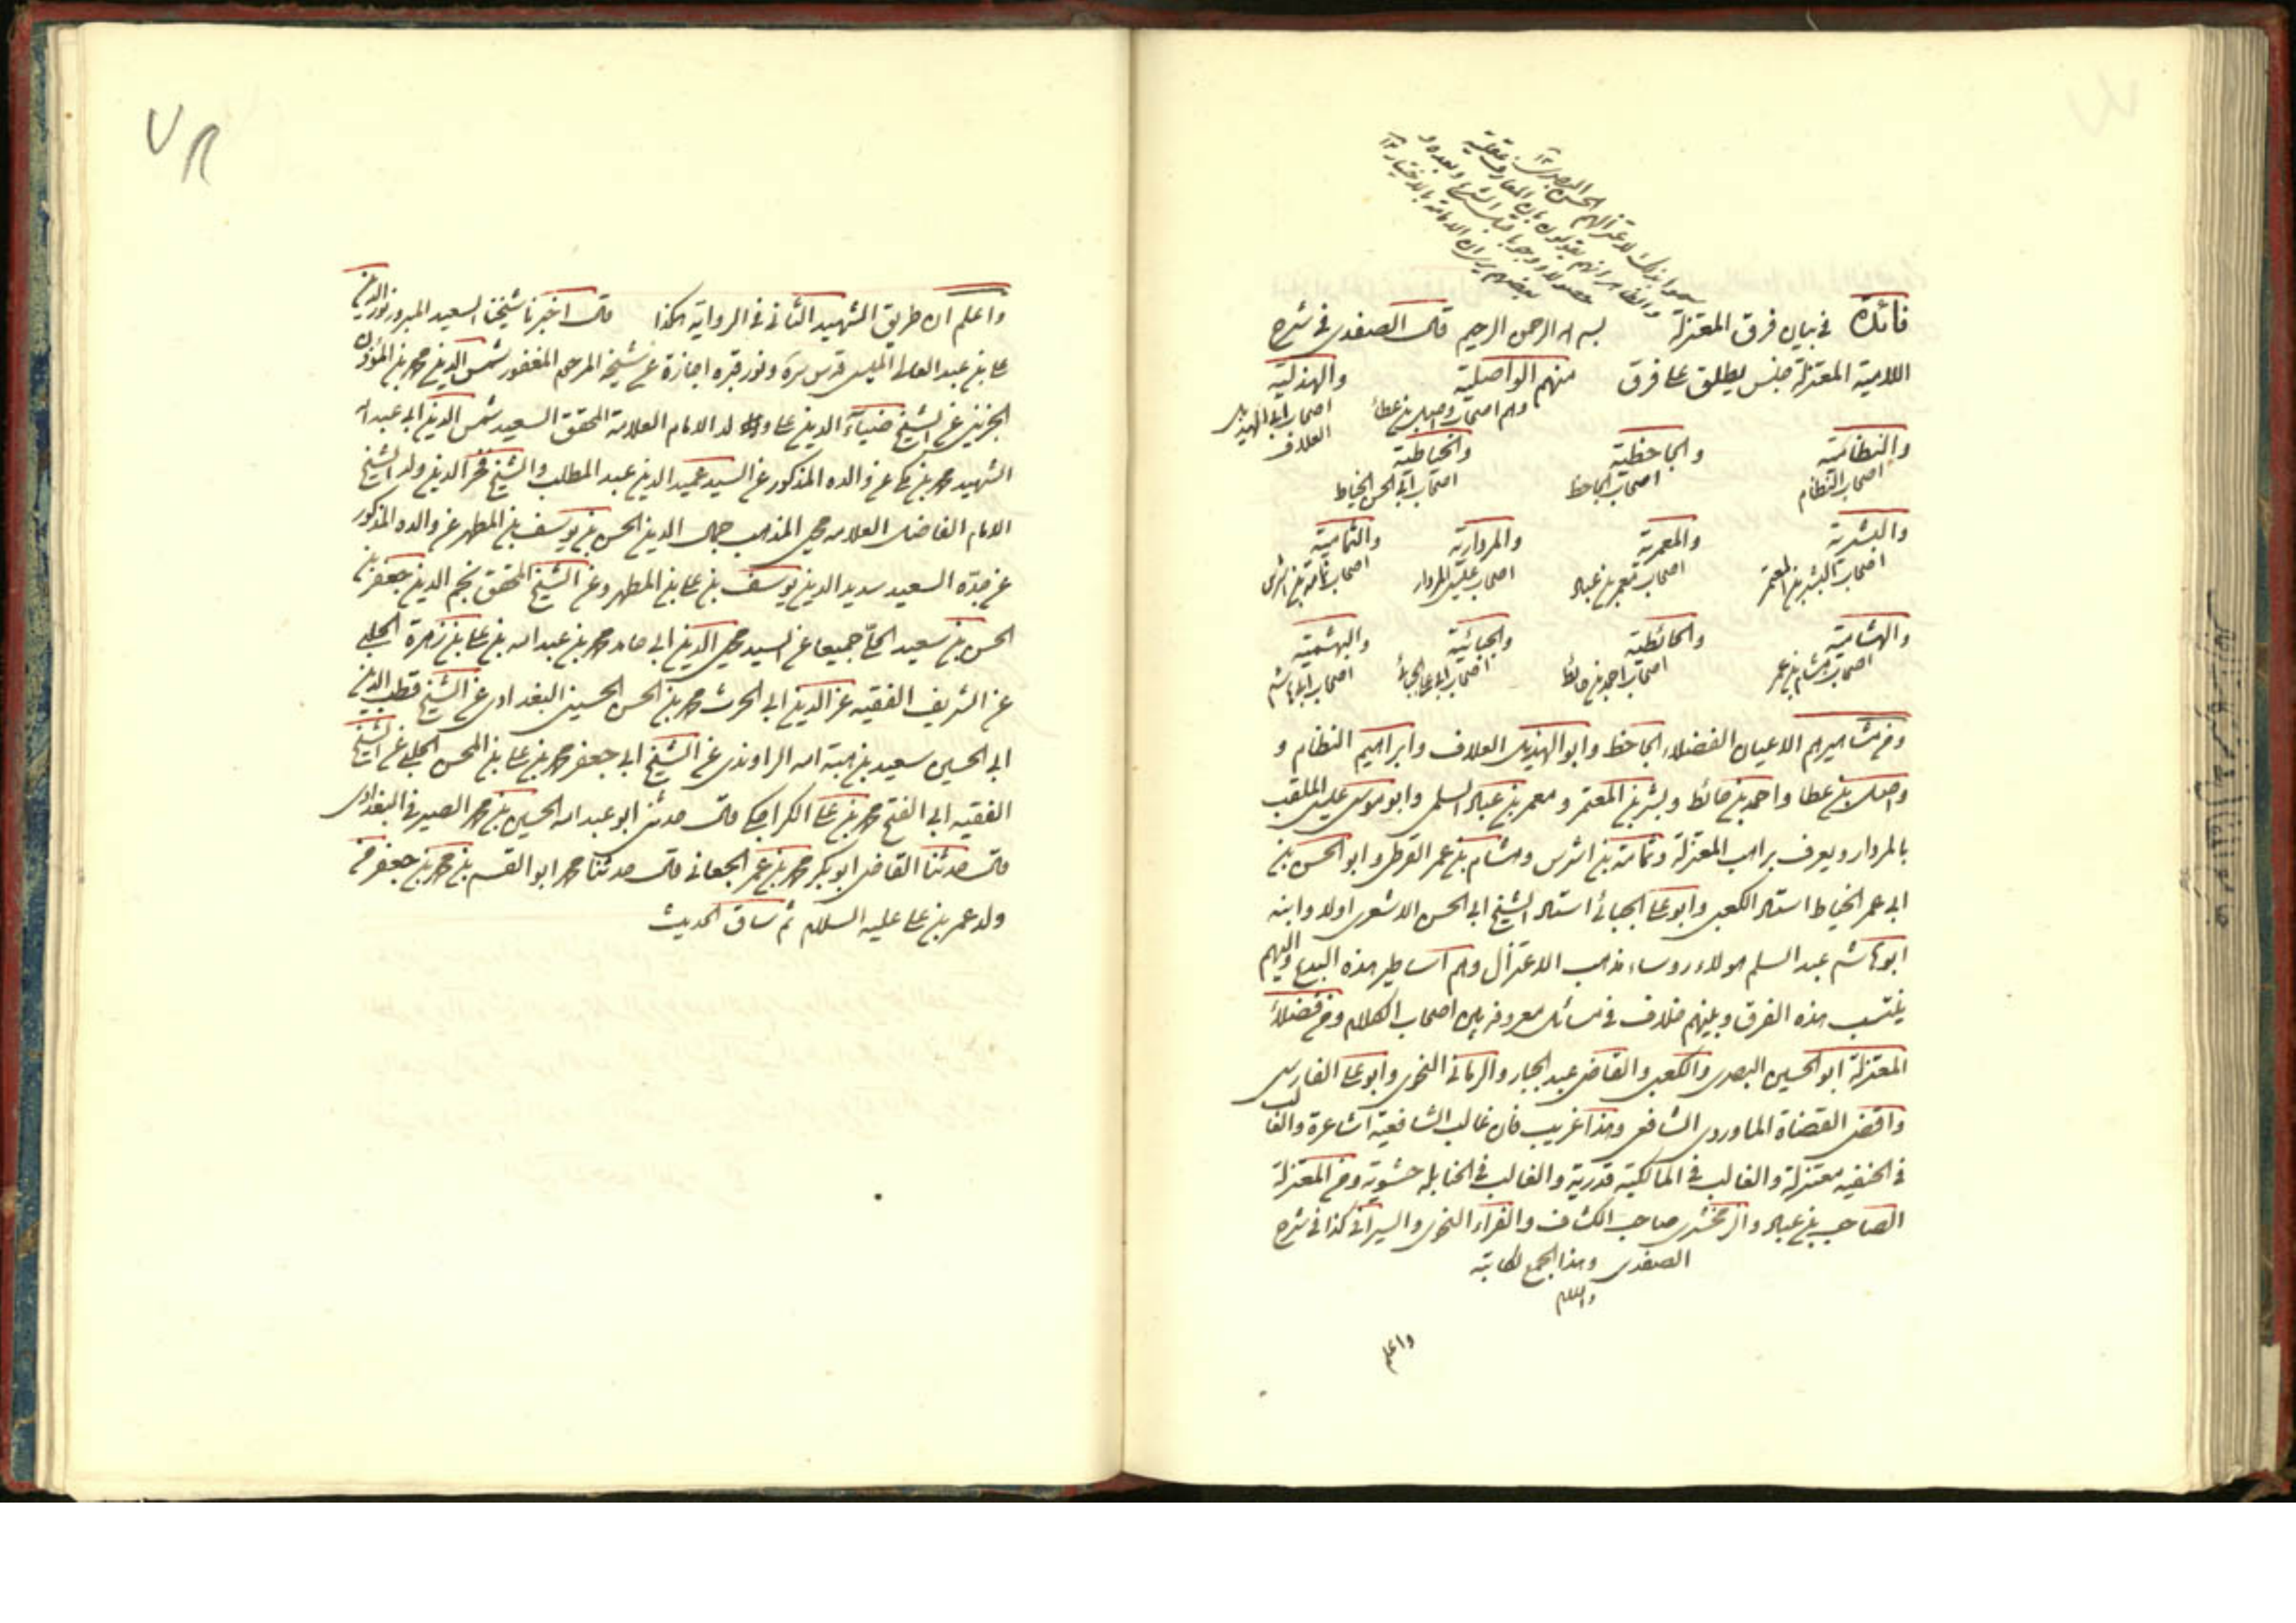 سموا بذلك لاعتزالهم الحسن البصري ١٢
والظاهر انهم يقولون بان المعارف عقلية
حصولا ووجوبا قبل الشرع وبعده و
بعضهم يرى ان الامامة بالاختيار ١٢
فائدة في بيان فرق المعتزلة بسم الله الرحمن الرحيم قال الصفدي في شرح
اللامية المعتزلة جنس يطلق على فرق منهم الواصلية والهذلية
وهم اصحاب واصل بن عطاء اصحاب ابي الهذيل
العلاف
والنظامية والجاحظية والخياطية
اصحاب النظام اصحاب الجاحظ اصحاب ابي الحسن الخياط
والبشرية والمعمرية والمردارية والثمامية
اصحاب البشر بن المعتمر اصحاب معمر بن عباد اصحاب عيسى المردار اصحاب ثمامة بن اشرس
والهشامية والحائطية والجبائية والبهشمية
اصحاب هشام بن عمر اصحاب احمد بن حائط اصحاب ابي علي الجبائي اصحاب ابي هاشم
ومن مشاهيرهم الاعيان الفضلاء الجاحظ وابو الهذيل العلاف وابراهيم النظام و
واصل بن عطا واحمد بن حائط وبشر بن المعتمر و معمر بن عباد السلمي وابو موسى عيسى الملقب
بالمردار ويعرف براهب المعتزلة وثمامة بن اشرس وهشام بن عمر الفوطي وابو الحسن بن
ابي عمر الخياط استاد الكعبي وابو علي الجبائي استاد الشيخ ابي الحسن الاشعري اولا وابنه
ابو هاشم عبد السلم هولاء روساء مذهب الاعتزال وهم اساطير هذه البدع واليهم
ينتسب هذه الفرق وبينهم خلاف في مسائل معروفة بين اصحاب الكلام ومن فضلاء
المعتزلة ابو الحسين البصري والكعبي والقاضي عبد الجبار والرماني النحوي وابو علي الفارسي
واقضى القضاة الماوردي الشافعي وهذا غريب فان غالب الشافعية اشاعرة والغالب
في الحنفية معتزلة والغالب في المالكية قدرية والغالب في الحنابلة حشوية ومن المعتزلة
الصاحب بن عباد والزمخشري صاحب الكشاف والفراء النحوي والسيرافي كذا في شرح
الصفدي وهذا الجمع لكاتبه
والسلم
واعلم
واعلم ان طريق الشهيد الثاني في الرواية هكذا قال اخبرنا شيخنا السعيد المبرور نور الدين
علي بن عبد العالي الميسي قدس سره ونور قبره اجازة عن شيخه المرحوم المغفور شمس الدين محمد بن المؤذن
الجزيني عن الشيخ ضياء الدين علي ولد الامام العلامة المحقق السعيد شمس الدين ابي عبد الله
الشهيد محمد بن مكي عن والده المذكور عن السيد عميد الدين عبد المطلب والشيخ فخر الدين ولد الشيخ
الامام الفاضل العلامه محيي المذهب جمال الدين الحسن بن يوسف بن المطهر عن والده المذكور
عن جده السعيد سديد الدين يوسف بن علي بن المطهر وعن الشيخ المحقق نجم الدين جعفر بن
الحسن بن سعيد الحلي جميعا عن السيد محيي الدين ابي حامد محمد بن عبد الله بن علي بن زهرة الحلبي
عن الشريف الفقيه عز الدين ابي الحرث محمد بن الحسن الحسيني البغدادي عن الشيخ قطب الدين
ابي الحسين سعيد بن هبة الله الراوندي عن الشيخ ابي جعفر محمد بن علي بن المحسن الحلبي عن الشيخ
الفقيه ابي الفتح محمد بن علي الكراجكي قال حدثني ابو عبد الله الحسين بن محمد الصيرفي البغدادي
قال حدثنا القاضي ابو بكر محمد بن عمر الجعاني قال حدثنا محمد ابو القسم بن محمد بن جعفر من
ولد عمر بن علي عليه السلام ثم ساق الحديث